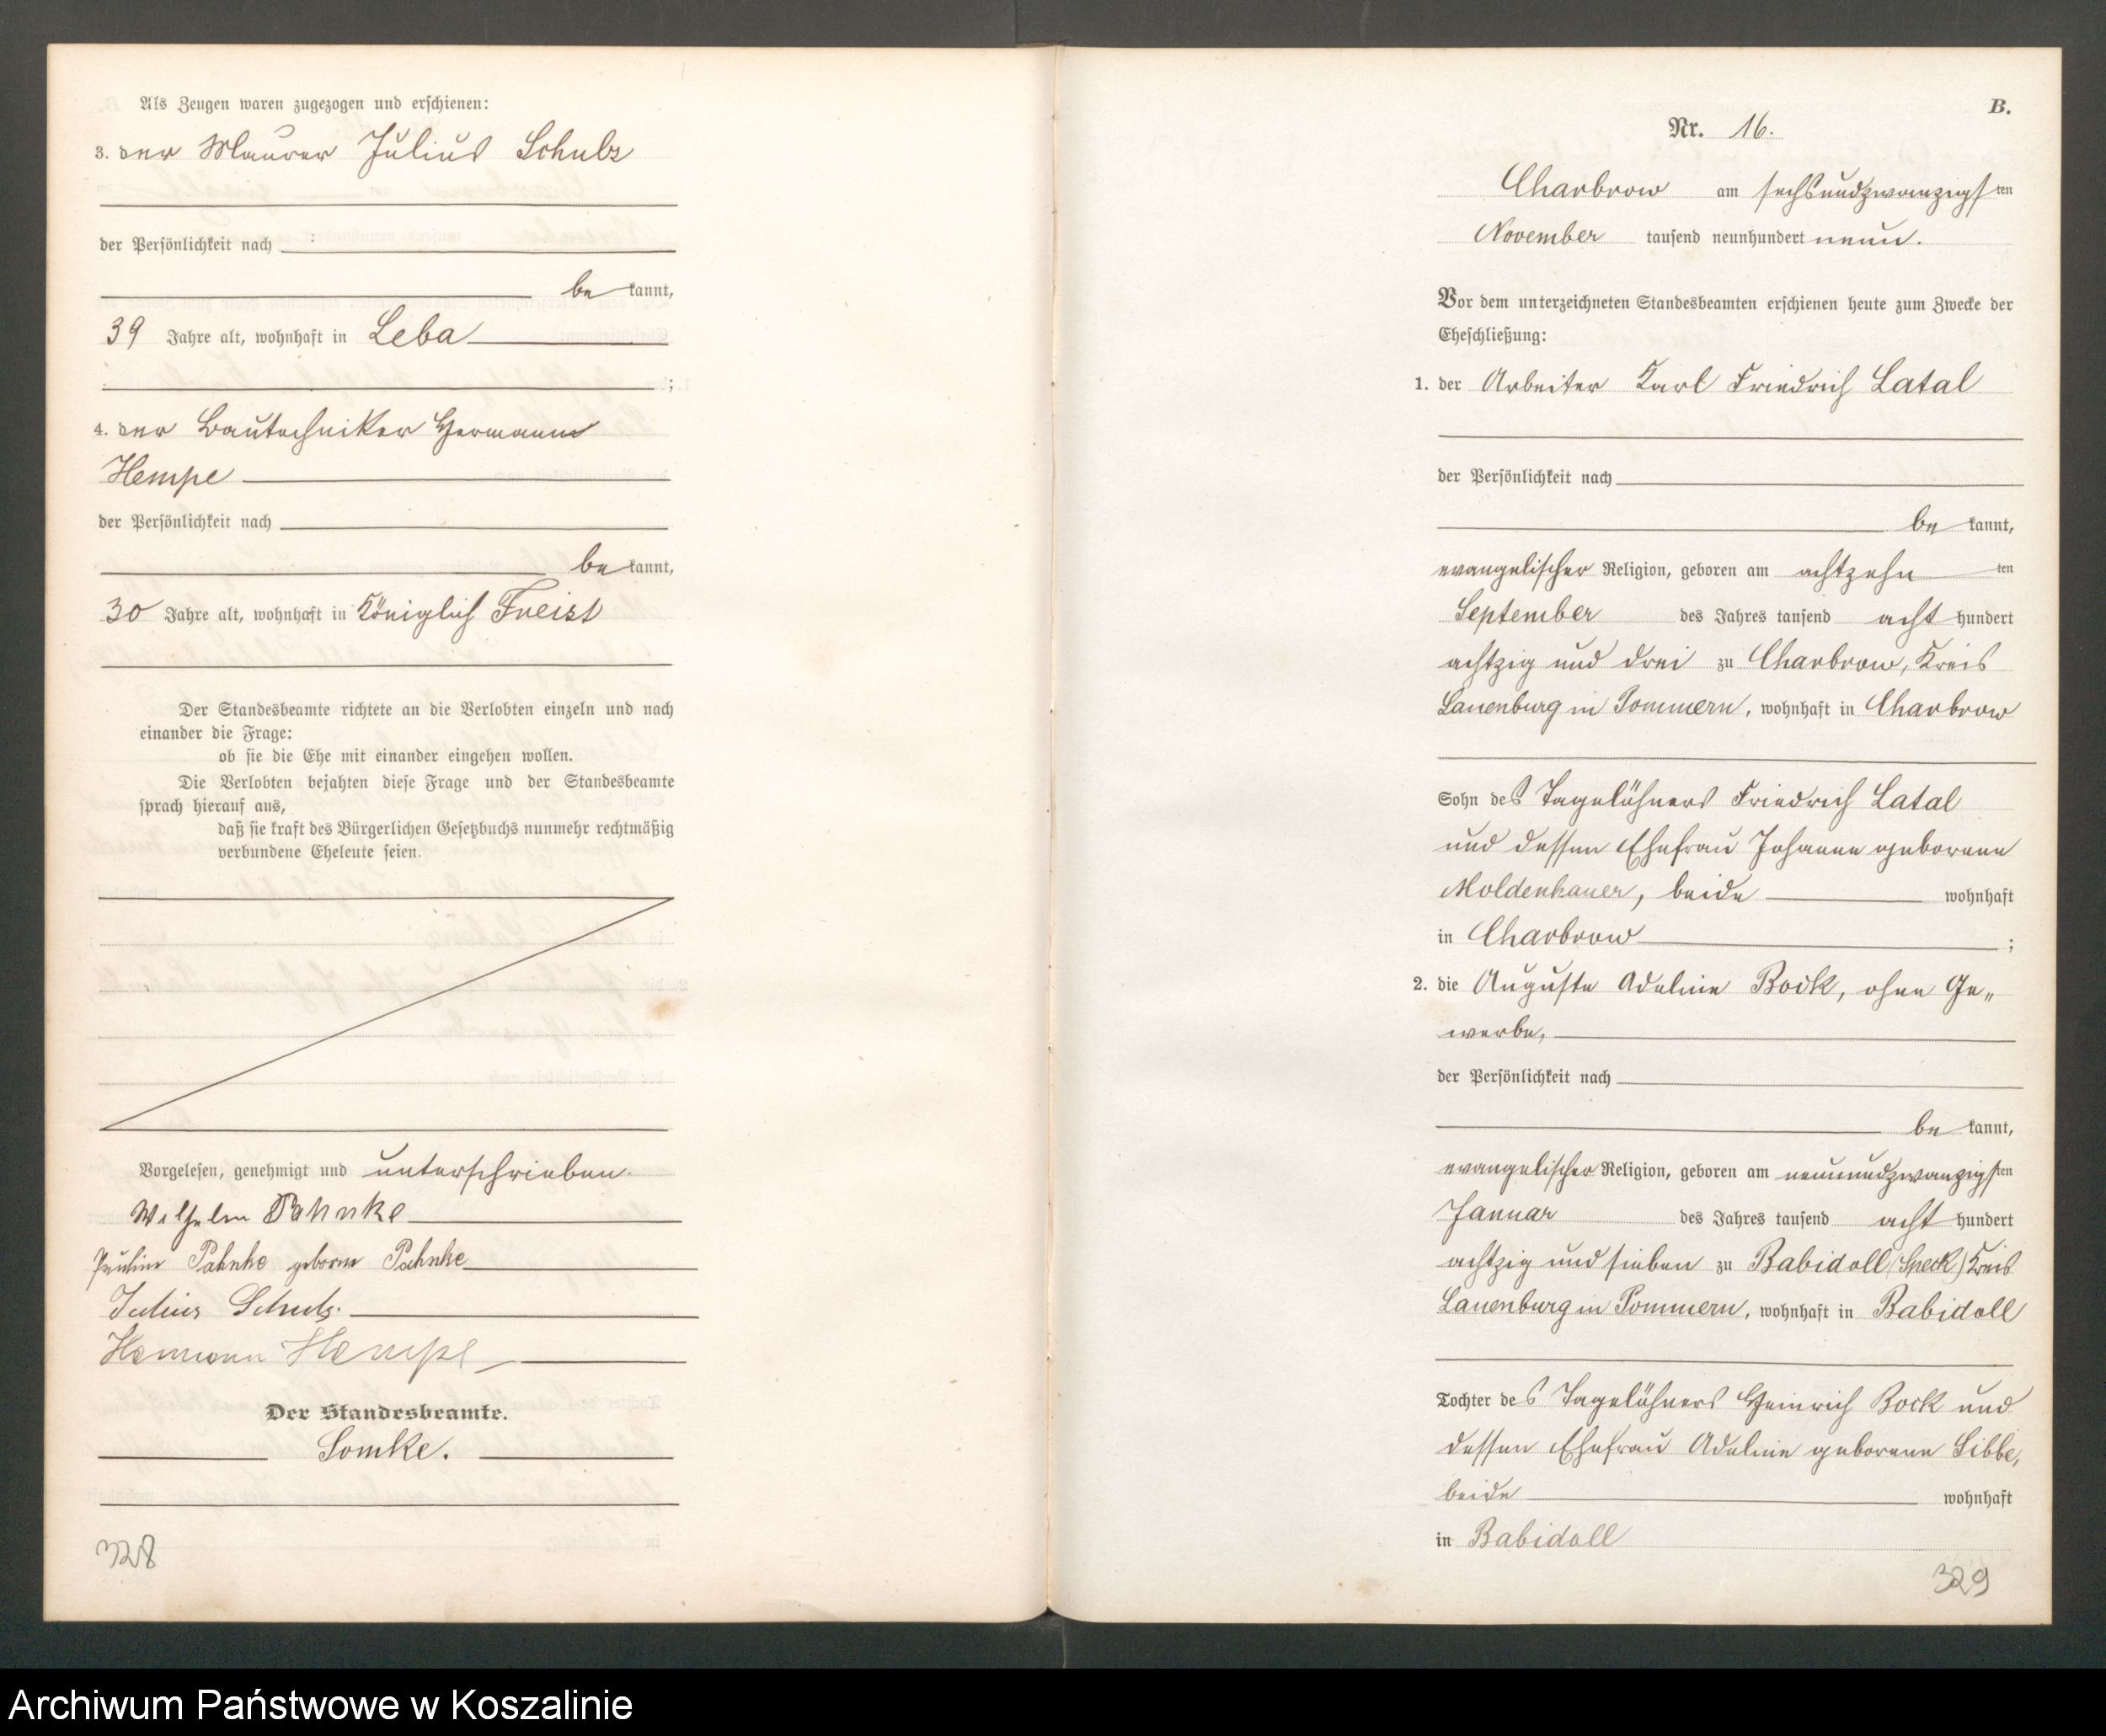 Als Zeugen waren zugezogen und erschienen:
3. der Maurer Julius Schulz
der Persönlichkeit nach
be kannt,
39 Jahre alt, wohnhaft in Leba
;
4. der Bautechniker Hermann
Hempe
der Persönlichkeit nach
be kannt,
30 Jahre alt, wohnhaft in Königlich Freist
Der Standesbeamte richtete an die Verlobten einzeln und nach
einander die Frage:
ob sie die Ehe mit einander eingehen wollen.
Die Verlobten bejahten diese Frage und der Standesbeamte
sprach hierauf aus,
daß sie kraft des Bürgerlichen Gesetzbuchs nunmehr rechtmäßig
verbundene Eheleute seien.
Vorgelesen, genehmigt und unterschrieben.
Wilhelm Pahnke
Pauline Pahnke geborne Pahnke
Julius Schulz.
Hermann Hempe
Der Standesbeamte.
Somke.
328
B.
Nr. 16.
Charbrow am sechsundzwanzigsten
November tausend neunhundert neun.
Vor dem unterzeichneten Standesbeamten erschienen heute zum Zwecke der
Eheschließung:
1. der Arbeiter Karl Friedrich Latal
der Persönlichkeit nach
be kannt,
evangelischer Religion, geboren am achtzehn ten
September des Jahres tausend acht hundert
achtzig und drei zu Charbrow, Kreis
Lauenburg in Pommern, wohnhaft in Charbrow
Sohn des Tagelöhners Friedrich Latal
und dessen Ehefrau Johanne geborene
Moldenhauer, beide wohnhaft
in Charbrow ;
2. die Auguste Adeline Bock, ohne Ge„
werbe,
der Persönlichkeit nach
be kannt,
evangelischer Religion, geboren am neunundzwanzigsten
Januar des Jahres tausend acht hundert
achtzig und sieben zu Babidoll (Speck) Kreis
Lauenburg in Pommern, wohnhaft in Babidoll
Tochter des Tagelöhners Heinrich Bock und
dessen Ehefrau Adeline geborene Libbe,
beide wohnhaft
in Babidoll
329
Archiwum Państwowe w Koszalinie